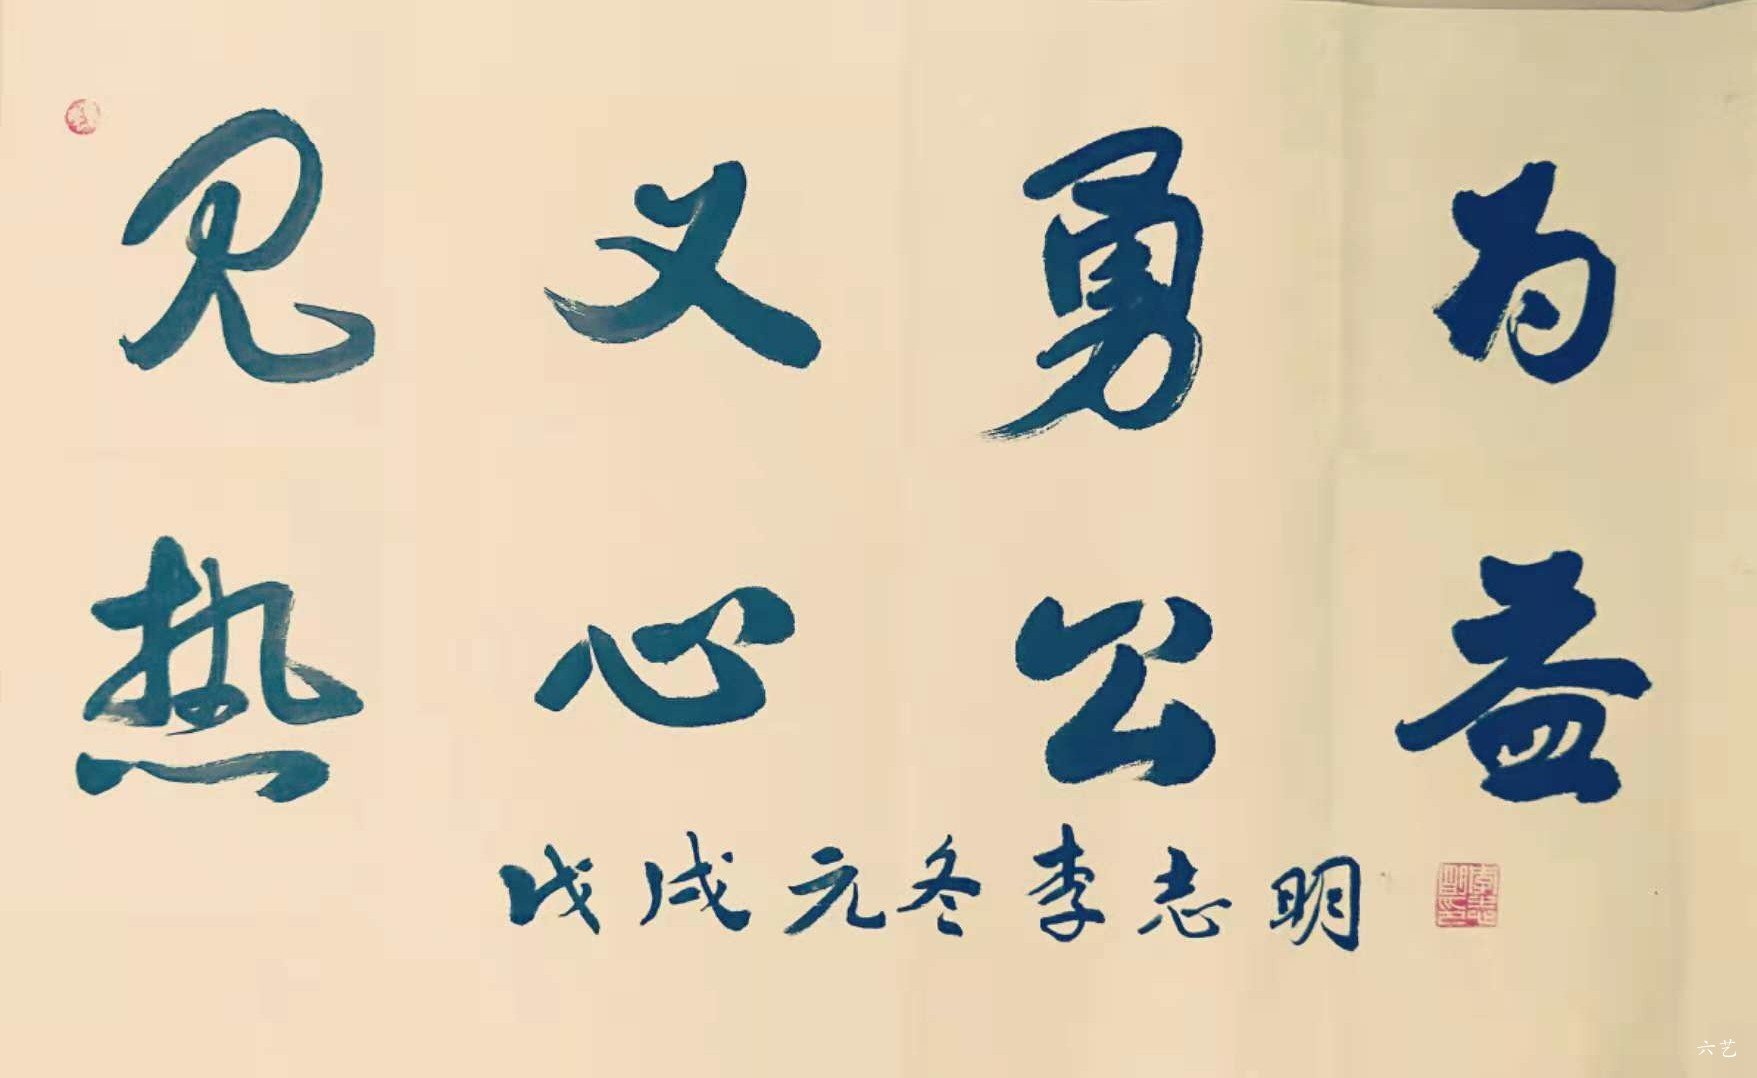 见义勇为
热心公益
戊戌元冬李志明
六艺